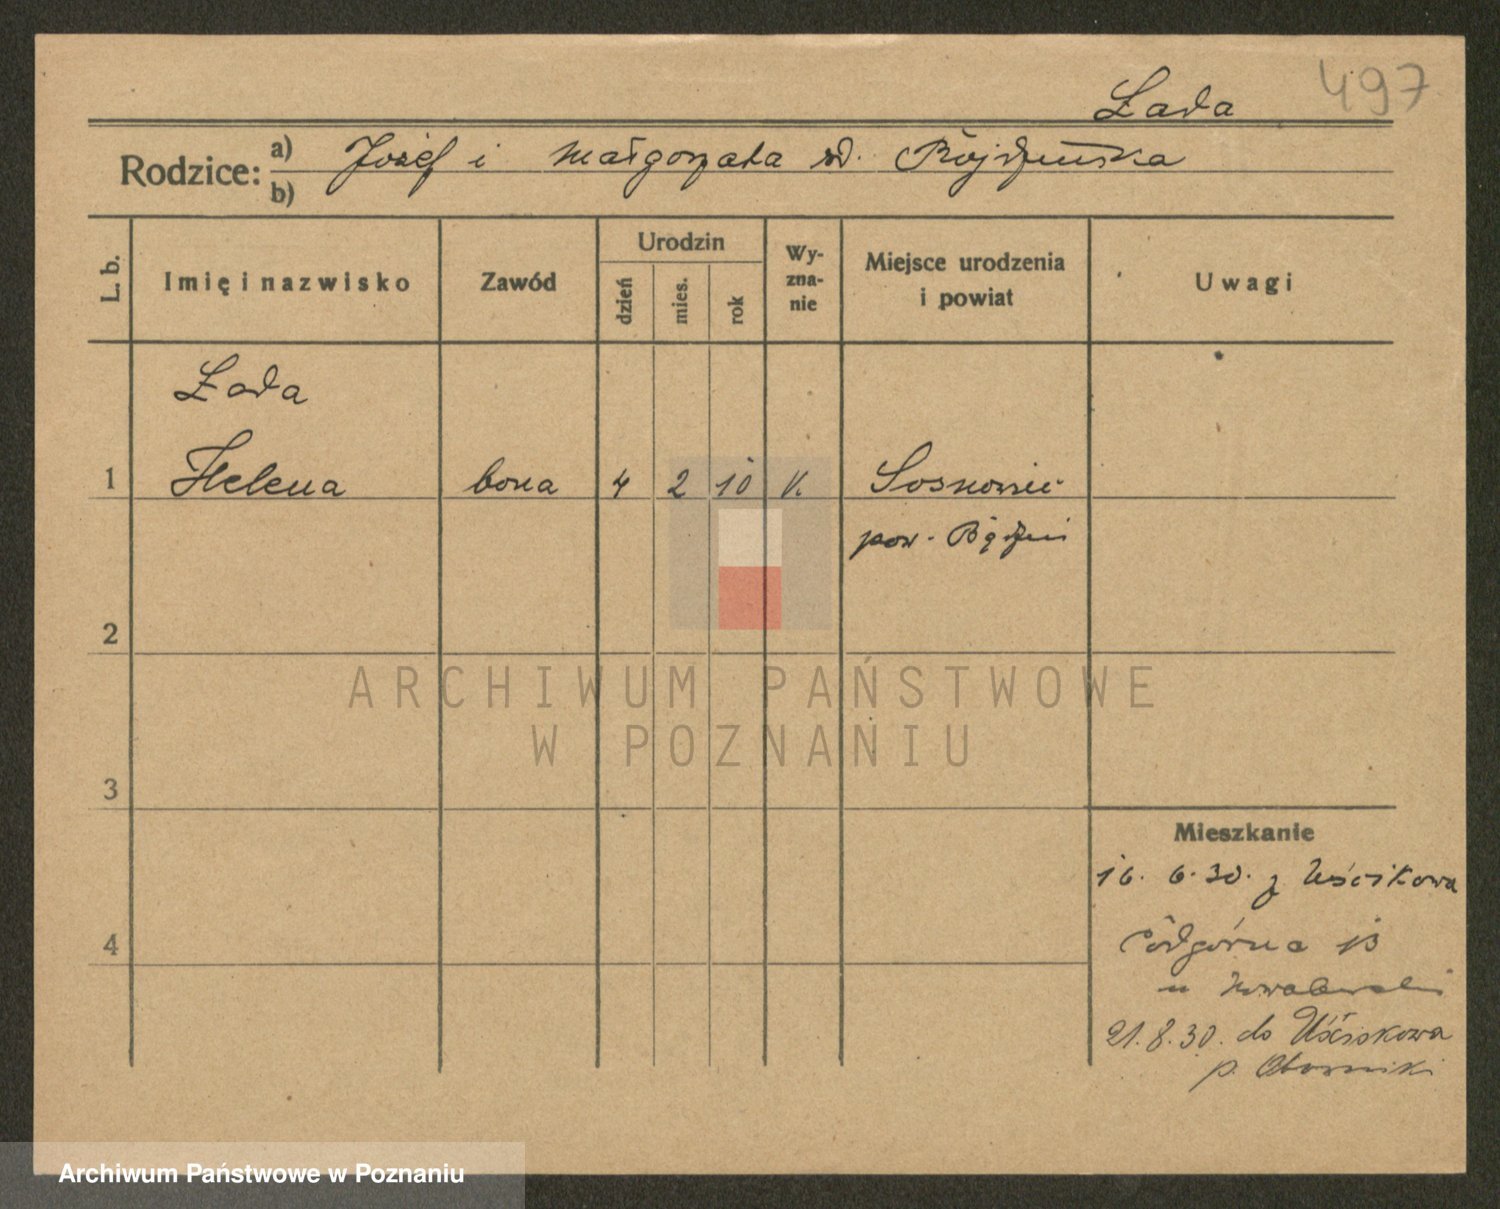 497
Łada
Rodzice: a) Józef i Małgorzata
b)
L. b.
Imię i nazwisko
Zawód
Urodzin
dzień
mies.
rok
Wy-
zna-
nie
Miejsce urodzenia
i powiat
Uwagi
Łada
1 Helena bona 4 2 10 k. Sosnowiec
pow. Będzin
2
3
4
Mieszkanie
16. 6. 30. z Uścikowa
Podgórna 13
u
21. 8. 30. do Uścikowa
p. Oborniki
ARCHIWUM PAŃSTWOWE
W POZNANIU
Archiwum Państwowe w Poznaniu